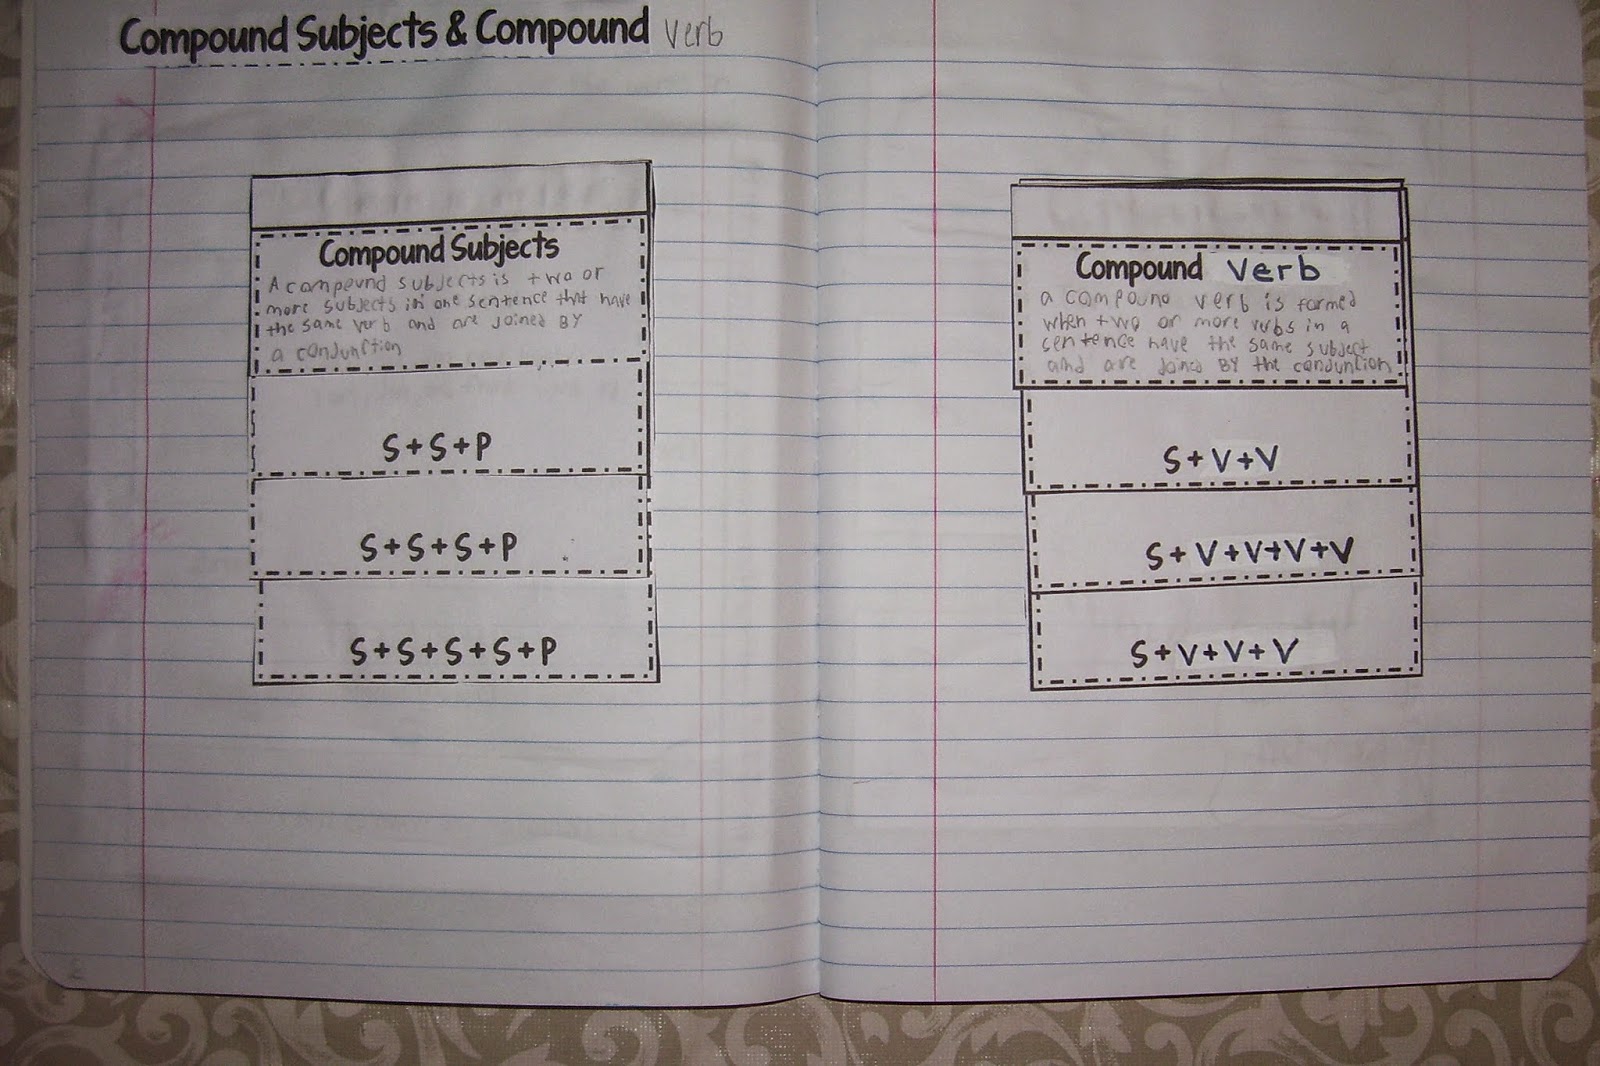 Compound Subjects & Compound verb
Compound Subjects
A compound subjects is two or
more subjects in one sentence that have
the same verb and are joined BY
a conjunction
S+S+P
S+S+S+P
S+S+S+S+P
Compound Verb
a compound verb is formed
when two or more verbs in a
sentence have the same subject
and are joined BY the conjuntion
S+V+V
S+V+V+V+V
S+V+V+V